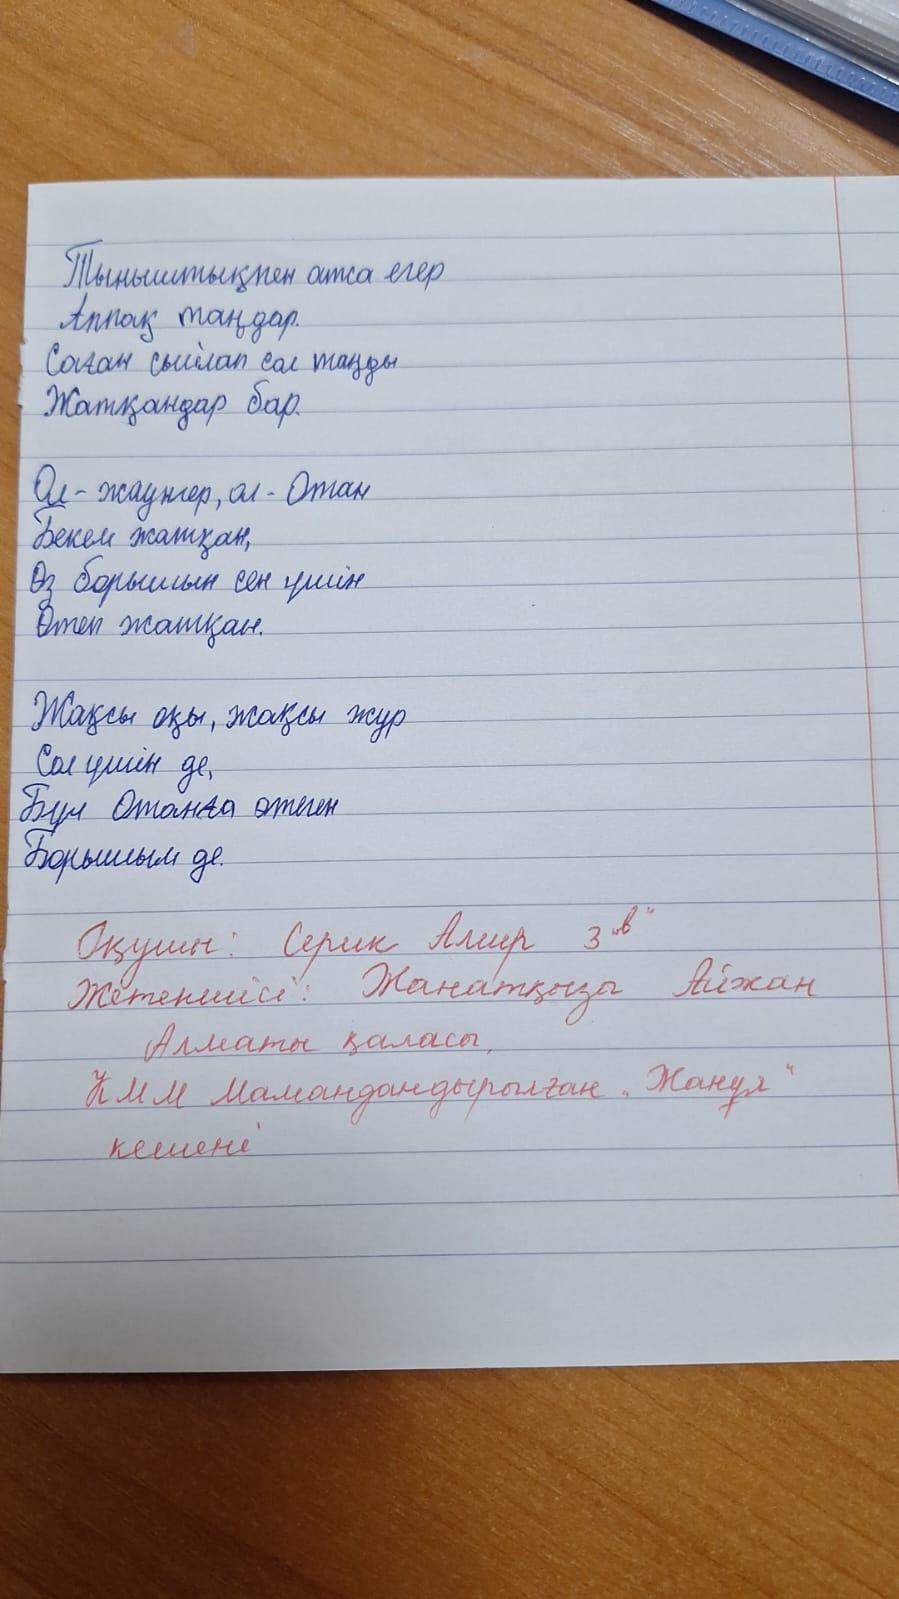 Тыныштықпен атса егер
Аппақ таңдар.
Саған сыйлап сол таңды
Жатқандар бар.
Ол - жауынгер, ол - Отан
Бекем жатқан,
Өз борышын сен үшін
Өтеп жатқан.
Жақсы оқы, жақсы жүр
Сол үшін де,
Бұл Отанға өтеген
Борышым де.
Оқушы: Серик Амир 3 "в"
Жетекшісі: Жанатқызы Айжан
Алматы қаласы,
КММ Мамандандырылған "Жанұя"
кешені